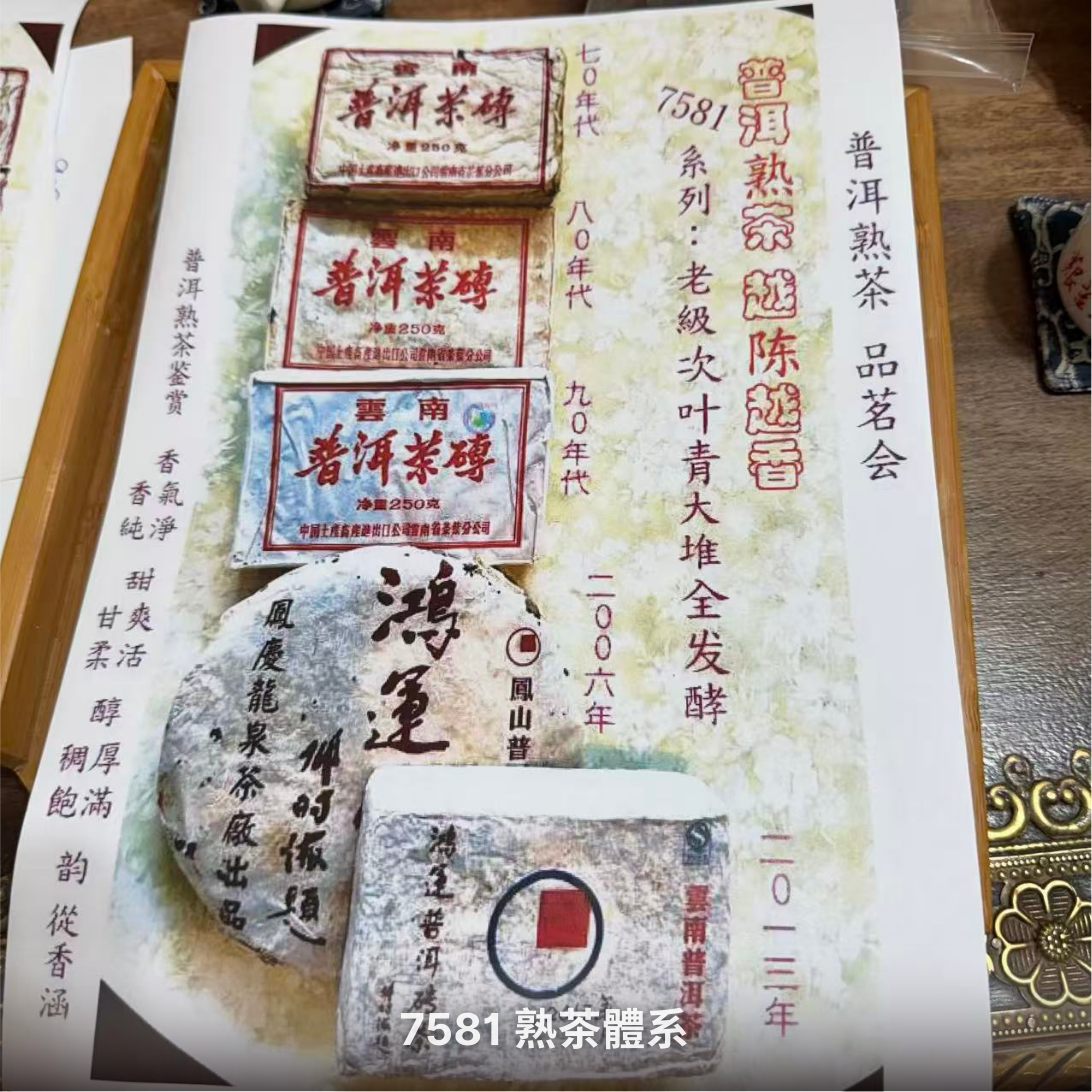 普洱熟茶 品茗会
普洱熟茶 越陈越香
7581
系列：老級次叶青大堆全发酵
七〇年代
雲南
普洱茶磚
净重250克
八〇年代
雲南
普洱茶磚
净重250克
中国土産畜産進出口公司雲南省茶葉分公司
九〇年代
雲南
普洱茶磚
净重250克
中国土産畜産進出口公司雲南省茶葉分公司
二〇〇六年
鳳山普
鴻運
鳳慶龍泉茶廠出品
二〇一三年
雲南普洱茶
鴻運普洱磚茶
普洱熟茶鉴赏
香氣
香淨
純
甜爽
甘活
柔
醇厚
稠滿
飽
韵
從香涵
7581 熟茶體系